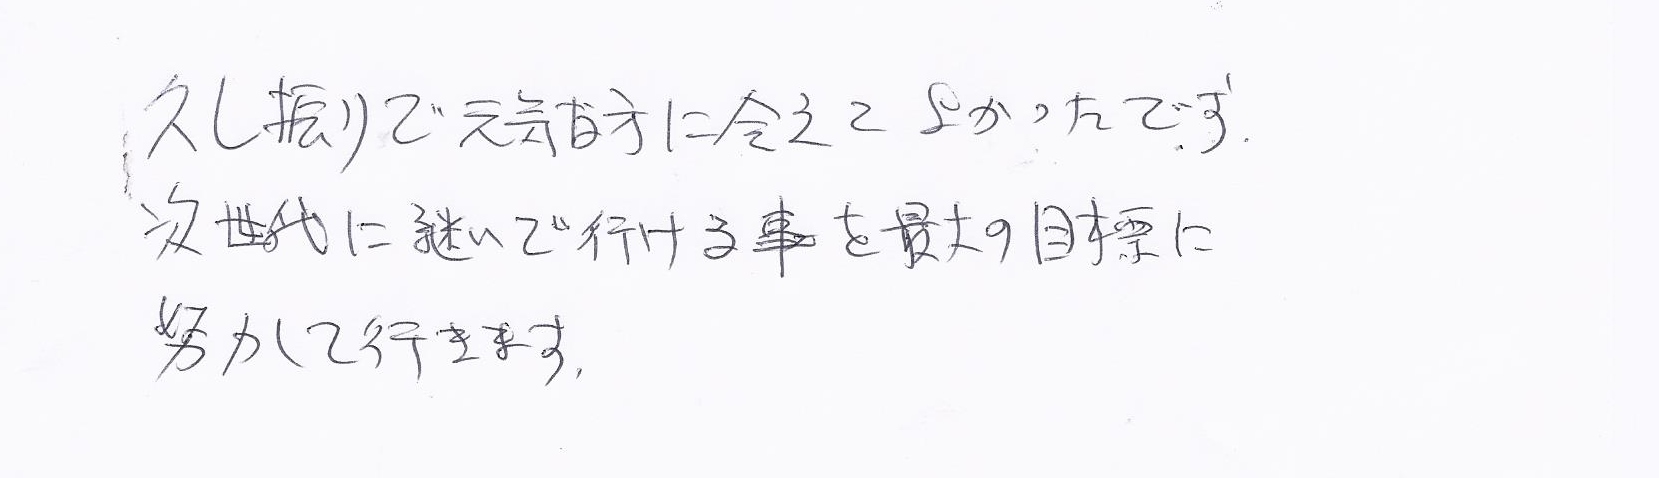 久し振りで元気な方に会えてよかったです.
次世代に継いで行ける事を最大の目標に
努力して行きます.